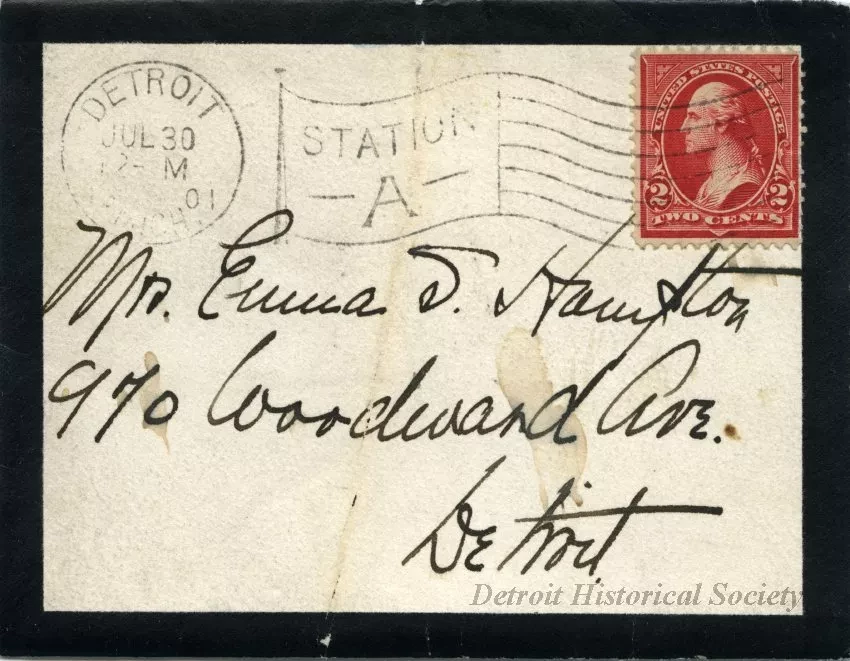 DETROIT
JUL 30
12- M
01
MICH.
STATION
-A-
UNITED STATES POSTAGE
2 2
TWO CENTS
Mrs. Emma S. Hampton
970 Woodward Ave.
Detroit
Detroit Historical Society